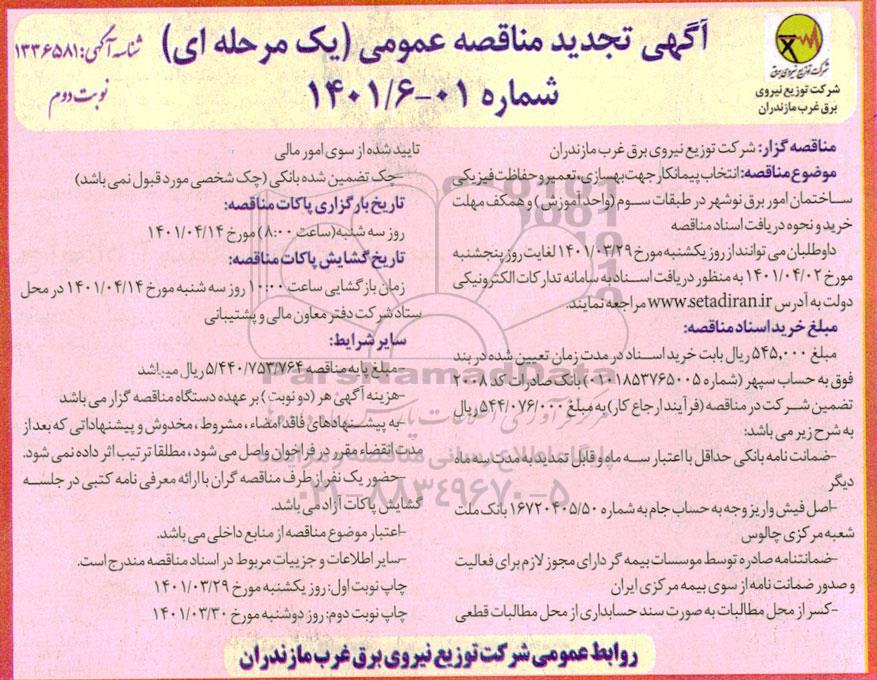 آگهی تجدید مناقصه عمومی (یک مرحله ای)
شماره ۰۱-۱۴۰۱/۶
شناسه آگهی: ۱۳۳۶۵۸۱
نوبت دوم
شرکت توزیع نیروی برق
شرکت توزیع نیروی
برق غرب مازندران
مناقصه گزار: شرکت توزیع نیروی برق غرب مازندران
موضوع مناقصه: انتخاب پیمانکار جهت بهسازی، تعمیر و حفاظت فیزیکی
ساختمان امور برق نوشهر در طبقات سوم (واحد آموزش) و همکف مهلت
خرید و نحوه دریافت اسناد مناقصه
داوطلبان می توانند از روز یکشنبه مورخ ۱۴۰۱/۰۳/۲۹ لغایت روز پنجشنبه
مورخ ۱۴۰۱/۰۴/۰۲ به منظور دریافت اسناد به سامانه تدارکات الکترونیکی
دولت به آدرس www.setadiran.ir مراجعه نمایند.
مبلغ خرید اسناد مناقصه:
مبلغ ۵۴۵,۰۰۰ ریال بابت خرید اسناد در مدت زمان تعیین شده در بند
فوق به حساب سپهر (شماره ۰۱۰۱۸۵۳۷۶۵۰۰۵) بانک صادرات کد ۲۰۰۸
تضمین شرکت در مناقصه (فرآیند ارجاع کار) به مبلغ ۵۴۴/۰۷۶/۰۰۰ ریال
به شرح زیر می باشد:
-ضمانت نامه بانکی حداقل با اعتبار سه ماه و قابل تمدید به مدت سه ماه
دیگر
-اصل فیش واریز وجه به حساب جام به شماره ۱۶۷۲۰۴۰۵/۵۰ بانک ملت
شعبه مرکزی چالوس
-ضمانتنامه صادره توسط موسسات بیمه گر دارای مجوز لازم برای فعالیت
و صدور ضمانت نامه از سوی بیمه مرکزی ایران
-کسر از محل مطالبات به صورت سند حسابداری از محل مطالبات قطعی
تایید شده از سوی امور مالی
-چک تضمین شده بانکی (چک شخصی مورد قبول نمی باشد)
تاریخ بارگزاری پاکات مناقصه:
روز سه شنبه (ساعت ۸:۰۰) مورخ ۱۴۰۱/۰۴/۱۴
تاریخ گشایش پاکات مناقصه:
زمان بازگشایی ساعت ۱۰:۰۰ روز سه شنبه مورخ ۱۴۰۱/۰۴/۱۴ در محل
ستاد شرکت دفتر معاون مالی و پشتیبانی
سایر شرایط:
-مبلغ پایه مناقصه ۵/۴۴۰/۷۵۳/۷۶۴ ریال میباشد
-هزینه آگهی هر (دو نوبت) بر عهده دستگاه مناقصه گزار می باشد
-به پیشنهادهای فاقد امضاء، مشروط، مخدوش و پیشنهاداتی که بعد از
مدت انقضاء مقرر در فراخوان واصل می شود، مطلقا ترتیب اثر داده نمی شود.
-حضور یک نفر از طرف مناقصه گران با ارائه معرفی نامه کتبی در جلسه
گشایش پاکات آزاد می باشد.
-اعتبار موضوع مناقصه از منابع داخلی می باشد.
-سایر اطلاعات و جزییات مربوط در اسناد مناقصه مندرج است.
چاپ نوبت اول: روز یکشنبه مورخ ۱۴۰۱/۰۳/۲۹
چاپ نوبت دوم: روز دوشنبه مورخ ۱۴۰۱/۰۳/۳۰
روابط عمومی شرکت توزیع نیروی برق غرب مازندران
ParsNamadData
۰۲۱-۸۸۳۴۹۶۷۰-۵